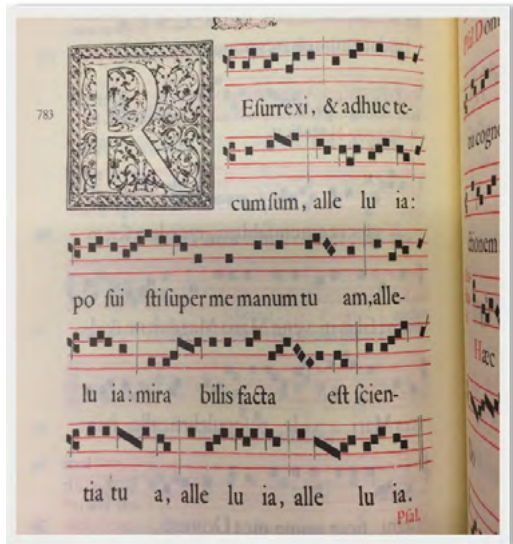 783
R
Eſurrexi, & adhuc te-
cum ſum, alle lu ia:
po ſui ſti ſuper me manum tu am, alle-
lu ia: mira bilis facta eſt ſcien-
tia tu a, alle lu ia, alle lu ia.
Pſal.
Pſal. Dom
tu cogno
ctionem
Hæc